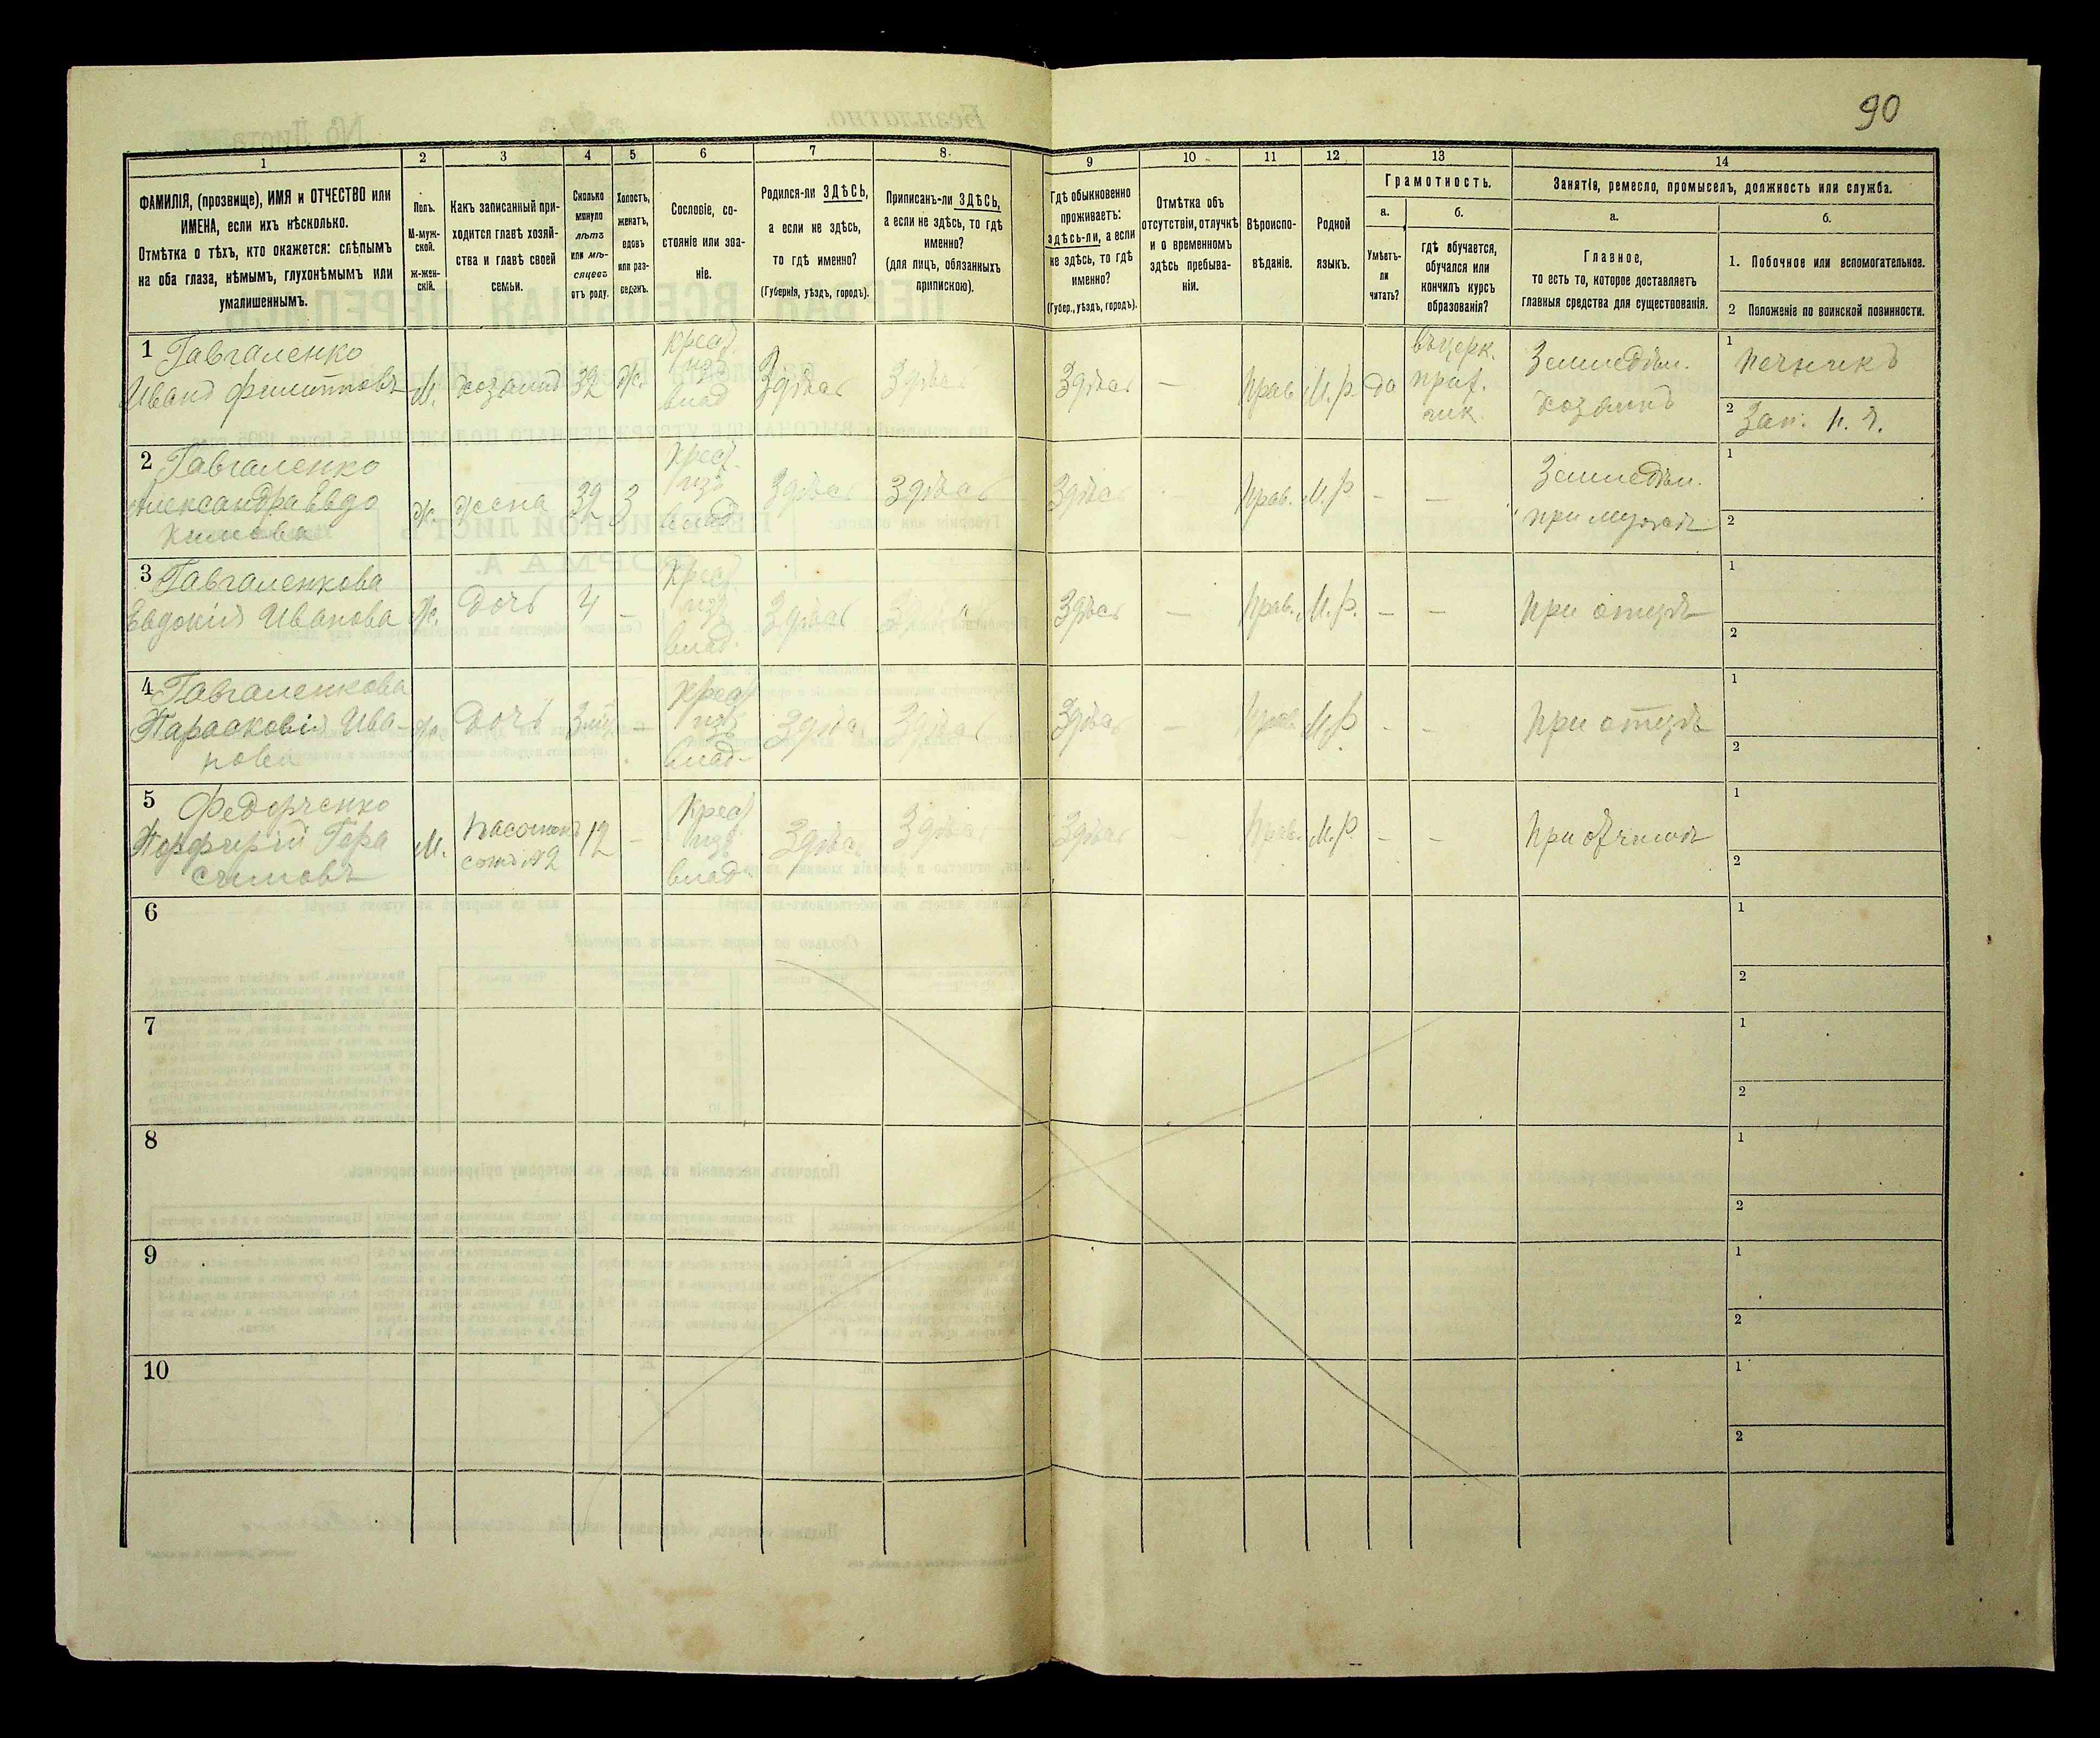 90
1
2
3
4
5
6
7
8
9
10
11
12
13
14
ФАМИЛІЯ, (прозвище), ИМЯ и ОТЧЕСТВО или
ИМЕНА, если ихъ нѣсколько.
Отмѣтка о тѣхъ, кто окажется: слѣпымъ
на оба глаза, нѣмымъ, глухонѣмымъ или
умалишеннымъ.
Полъ.
М-муж-
ской.
ж-жен-
скій.
Какъ записанный при-
ходится главѣ хозяй-
ства и главѣ своей
семьи.
Сколько
минуло
лѣтъ
или мѣ-
сяцевъ
отъ роду.
Холостъ,
женатъ,
вдовъ
или раз-
веденъ.
Сословіе, со-
стояніе или зва-
ніе.
Родился-ли ЗДѢСЬ,
а если не здѣсь,
то гдѣ именно?
(Губернія, уѣздъ, городъ).
Приписанъ-ли ЗДѢСЬ,
а если не здѣсь, то гдѣ
именно?
(для лицъ, обязанныхъ
припискою).
Гдѣ обыкновенно
проживаетъ:
здѣсь-ли, а если
не здѣсь, то гдѣ
именно?
(Губер., уѣздъ, городъ).
Отмѣтка объ
отсутствіи, отлучкѣ
и о временномъ
здѣсь пребыва-
ніи.
Вѣроиспо-
вѣданіе.
Родной
языкъ.
Грамотность.
а.
Умѣетъ-
ли
читать?
б.
гдѣ обучается,
обучался или
кончилъ курсъ
образованія?
Занятія, ремесло, промыселъ, должность или служба.
а.
Главное,
то есть то, которое доставляетъ
главныя средства для существованія.
б.
1. Побочное или вспомогательное.
2 Положеніе по воинской повинности.
1 Гавгаленко
Иванъ Филипповъ
М.
хозяинъ
32
Ж.
Крест.
изъ
влад
Здѣсь
Здѣсь
Здѣсь
—
Прав
М.р.
да
въ церк.
приход.
Земледѣл.
хозяинъ
1 Печникъ
2
2 Гавгаленко
Александра Евдо
кимова
Ж.
жена
32
З
Крест.
изъ
влад
Здѣсь
Здѣсь
Здѣсь
Прав.
М.р
—
—
Земледѣл.
при мужѣ
1
2
3 Гавгаленкова
Евдокія Иванова
Ж.
дочь
4
—
Крест.
изъ
влад.
Здѣсь
Здѣсь
Здѣсь
—
Прав.
М.р.
—
—
При отцѣ
1
2
4 Гавгаленкова
Парасковія Ива-
нова
Ж.
дочь
—
Крест
изъ
влад-
Здѣсь
Здѣсь
Здѣсь
—
Прав.
М.р
-
-
При отцѣ
1
2
5 Федорченко
Порфирій Гера
симовъ
М.
пасынокъ
12
—
Крест
изъ
влад.
Здѣсь
Здѣсь
Здѣсь
Прав.
М.р.
—
—
При отчимѣ
1
2
6
1
2
7
1
2
8
1
2
9
1
2
10
1
2